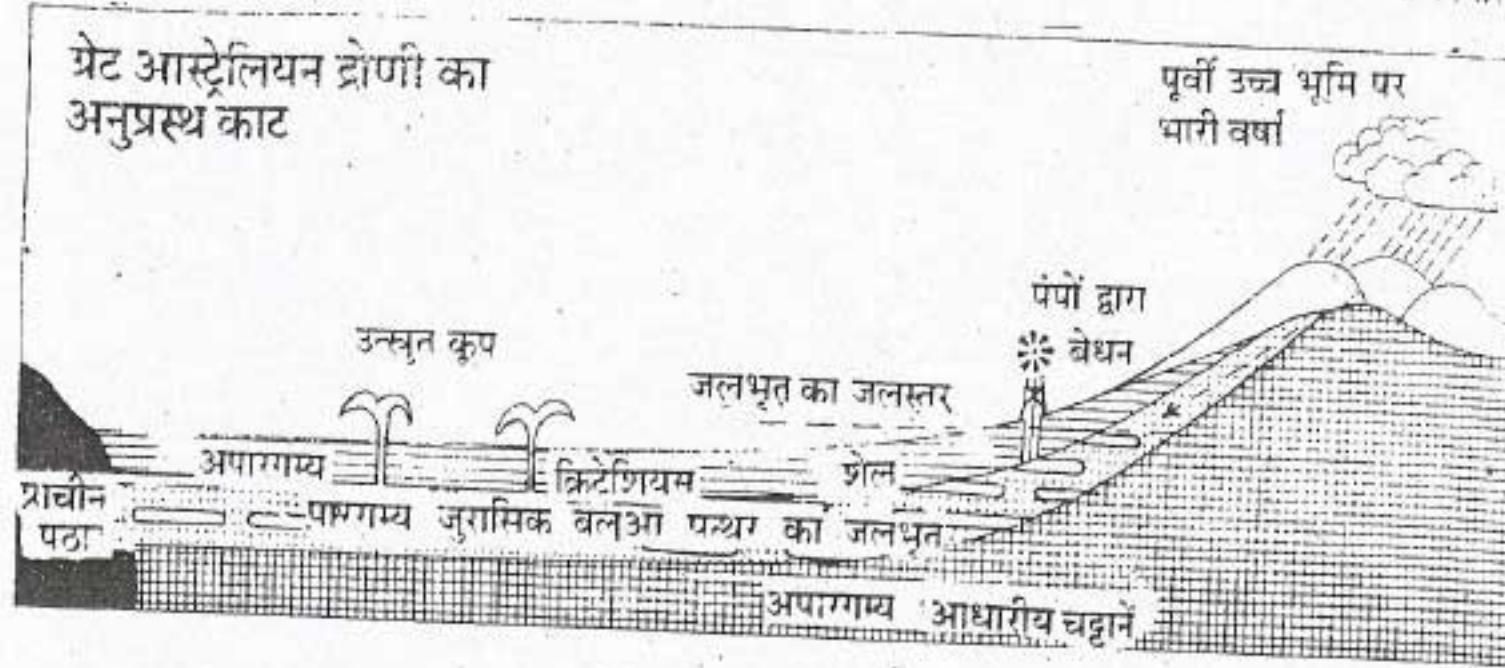 ग्रेट आस्ट्रेलियन द्रोणी का
अनुप्रस्थ काट
पूर्वी उच्च भूमि पर
भारी वर्षा
पंपों द्वारा
बेधन
उत्स्रुत कूप
जलभृत का जलस्तर
अपारगम्य क्रिटेशियम शेल
प्राचीन
पठा
पारगम्य जुरासिक बलुआ पत्थर का जलभृत
अपारगम्य आधारीय चट्टानें